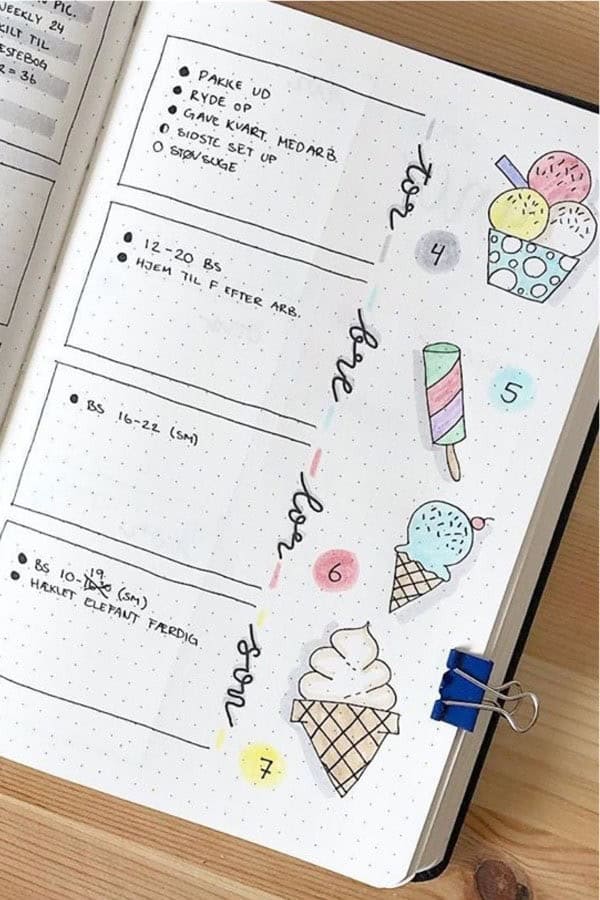 PIC.
WEEKLY 24
TIL
= 36
PAKKE UD
RYDE OP
GAVE KVART. MEDARB.
SIDSTE SET UP
STØVSUGE
tor
4
12-20 BS
HJEM TIL F EFTER ARB.
fre
5
BS 16-22 (SM)
lør
6
19
BS 10- (SM)
HÆKLET ELEFANT FÆRDIG
søn
7